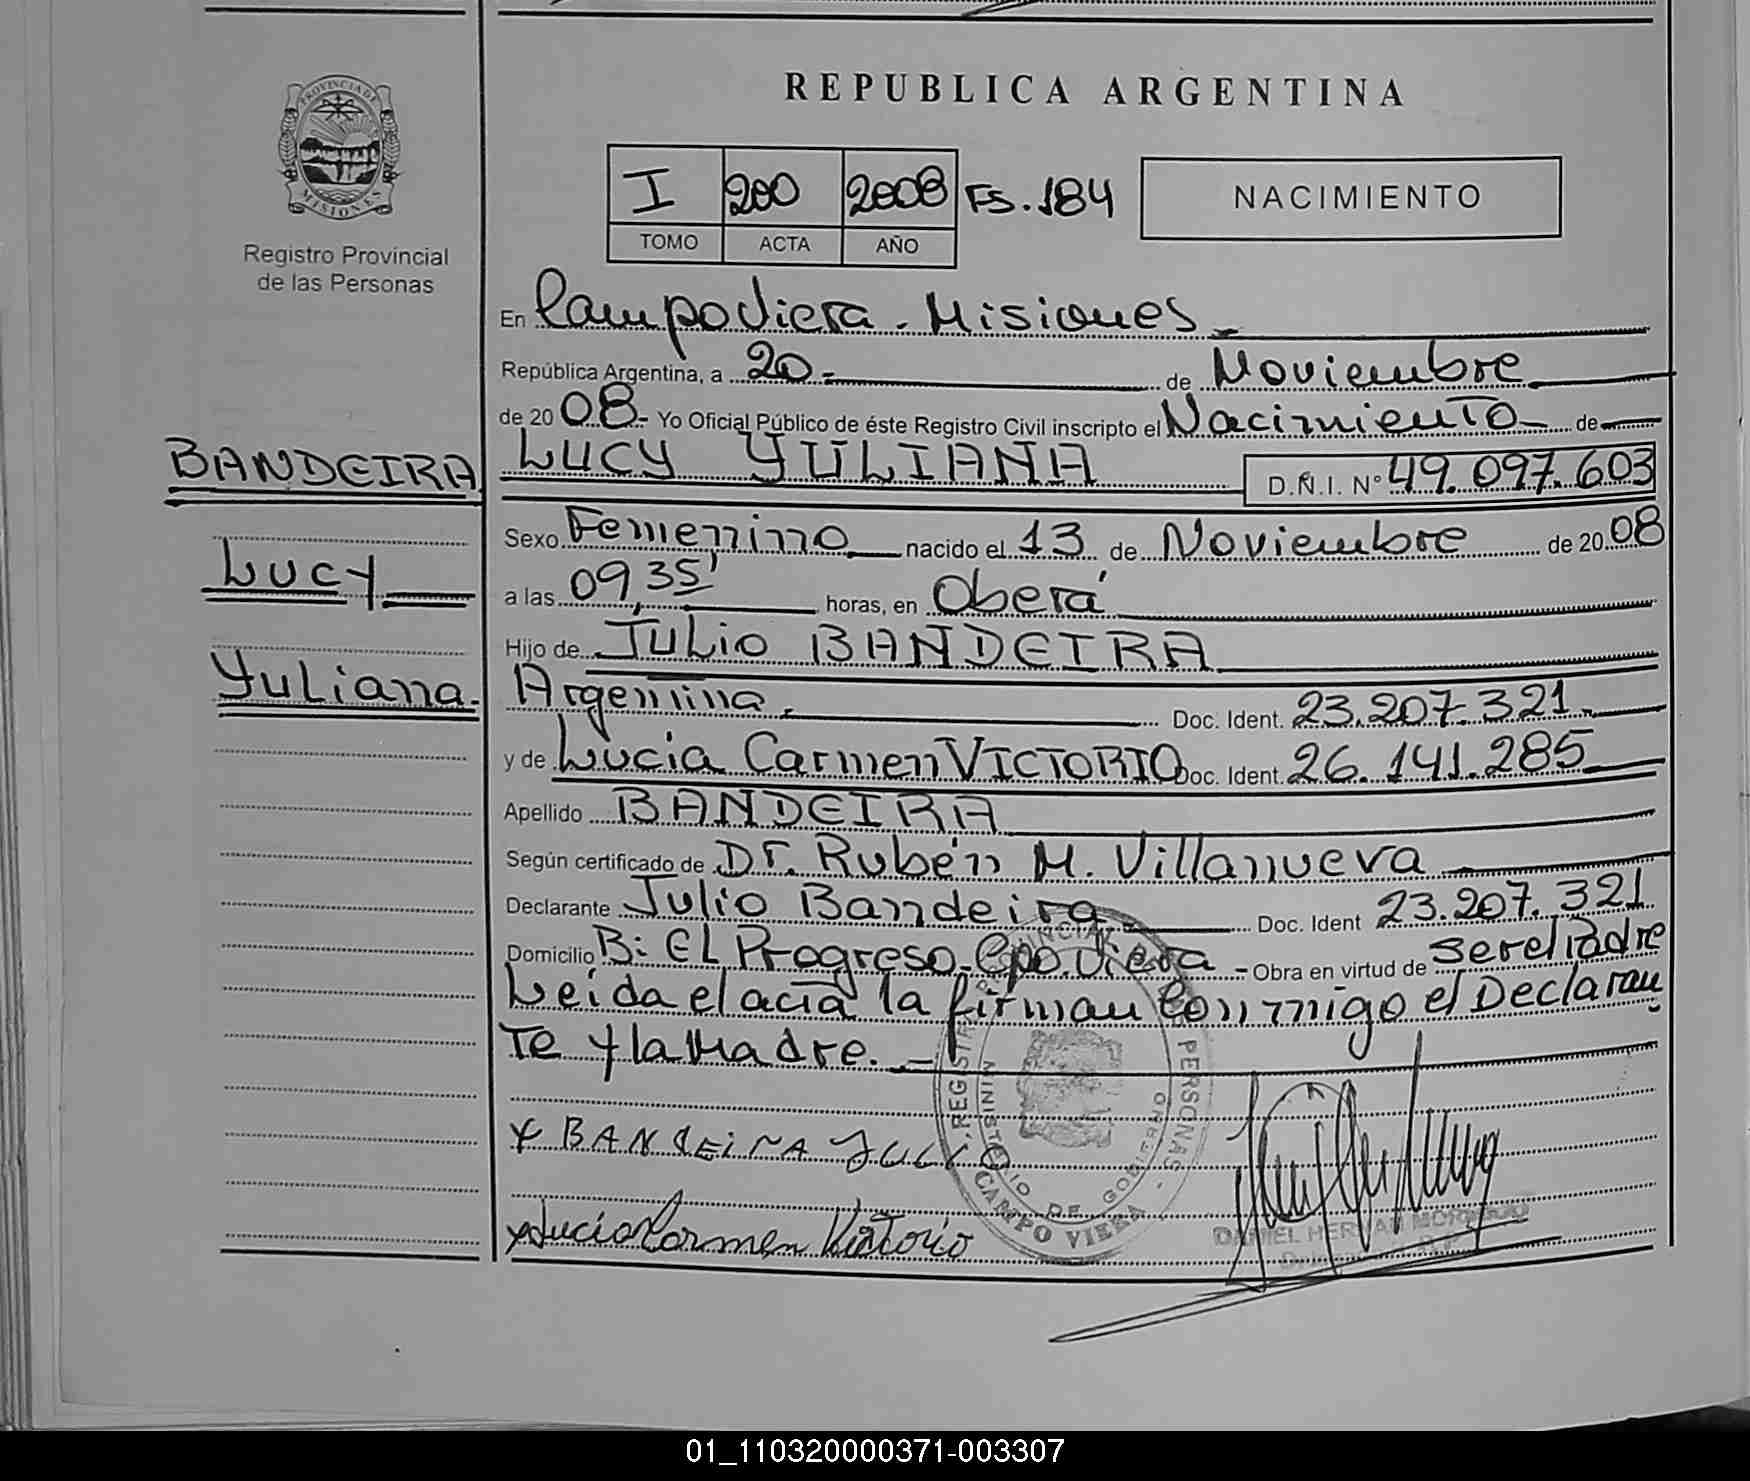 PROVINCIA DE
MISIONES
Registro Provincial
de las Personas
REPUBLICA ARGENTINA
I 200 2008 FS. 184
TOMO ACTA AÑO
NACIMIENTO
En Campo Viera - Misiones
República Argentina, a 20 de Noviembre
de 2008 Yo Oficial Público de éste Registro Civil inscripto el Nacimiento de
BANDEIRA LUCY YULIANA D.N.I. N° 49.097.603
Lucy
Yuliana.
Sexo Femenino nacido el 13 de Noviembre de 2008
a las 09,35' horas, en Oberá
Hijo de JULIO BANDEIRA
Argentina. Doc. Ident. 23.207.321
y de Lucia Carmen VICTORIO Doc. Ident. 26.141.285
Apellido BANDEIRA
Según certificado de Dr. Rubén M. Villanueva
Declarante Julio Bandeira Doc. Ident 23.207.321
Domicilio B: EL Progreso - Cpo. Viera - Obra en virtud de ser el Padre
Leida el acta la firman Conmigo el Declaran
Te y la Madre.
x BANDEIRA JULIO
x Lucia Carmen Victorio
REGISTRO PERSONAS
MINISTERIO DE GOBIERNO
CAMPO VIERA
DANIEL HERNAN
01_110320000371-003307